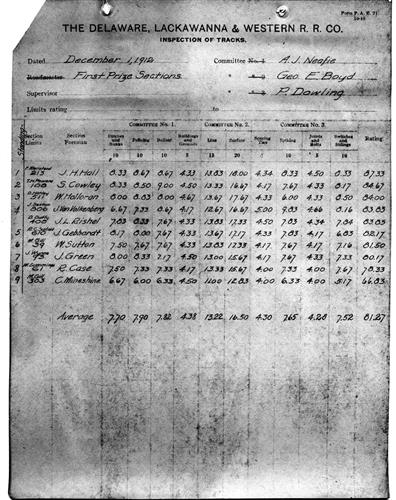 Form P. A. E. 71
THE DELAWARE, LACKAWANNA & WESTERN R. R. CO.
INSPECTION OF TRACKS.
Dated December 1, 1912 Committee No. 1 A. J. Neafie
Roadmaster First Prize Sections " " 2 Geo. E. Boyd
Supervisor " " 3 P. Dowling
Limits rating to
COMMITTEE No. 1. COMMITTEE No. 2. COMMITTEE No. 3.
Standing Section Limits Section Foreman Ditches and Banks Policing Ballast Buildings and Grounds Line Surface Spacing Ties Spiking Joints and Bolts Switches and Sidings Rating
10 10 10 5 15 20 5 10 5 10
1 213 J. H. Hall 8.33 8.67 8.67 4.33 13.83 18.00 4.34 8.33 4.50 8.33 87.33
2 108 S. Cowley 8.33 8.50 9.00 4.50 13.33 16.67 4.17 7.67 4.33 8.17 84.67
3 511 W. Halloran 8.00 8.83 8.00 4.67 13.67 17.67 4.33 6.00 4.50 8.33 84.00
4 506 J. Van Valkenberg 6.67 7.33 8.67 4.17 12.67 16.67 5.00 7.83 4.66 8.16 83.83
408 J. L. Rishel 7.83 8.33 7.67 4.33 13.83 17.33 4.50 7.83 4.34 7.84 83.83
5 610 J. Gebhardt 8.17 8.00 7.67 4.33 13.67 17.17 4.33 7.83 4.17 6.83 82.17
6 W. Sutton 7.50 7.67 7.67 4.33 13.83 17.33 4.17 7.67 4.17 7.16 81.50
7 J. Green 8.00 8.33 8.17 4.50 13.00 15.67 4.17 7.67 4.33 7.33 80.17
8 61 R. Case 7.50 7.33 7.33 4.17 13.33 15.67 4.00 7.33 4.00 7.67 78.33
9 303 C. Mineshine 6.67 6.00 6.33 4.50 11.00 12.83 4.00 6.33 4.00 5.17 66.83
Average 7.70 7.90 7.82 4.38 13.22 16.50 4.30 7.65 4.28 7.52 81.27